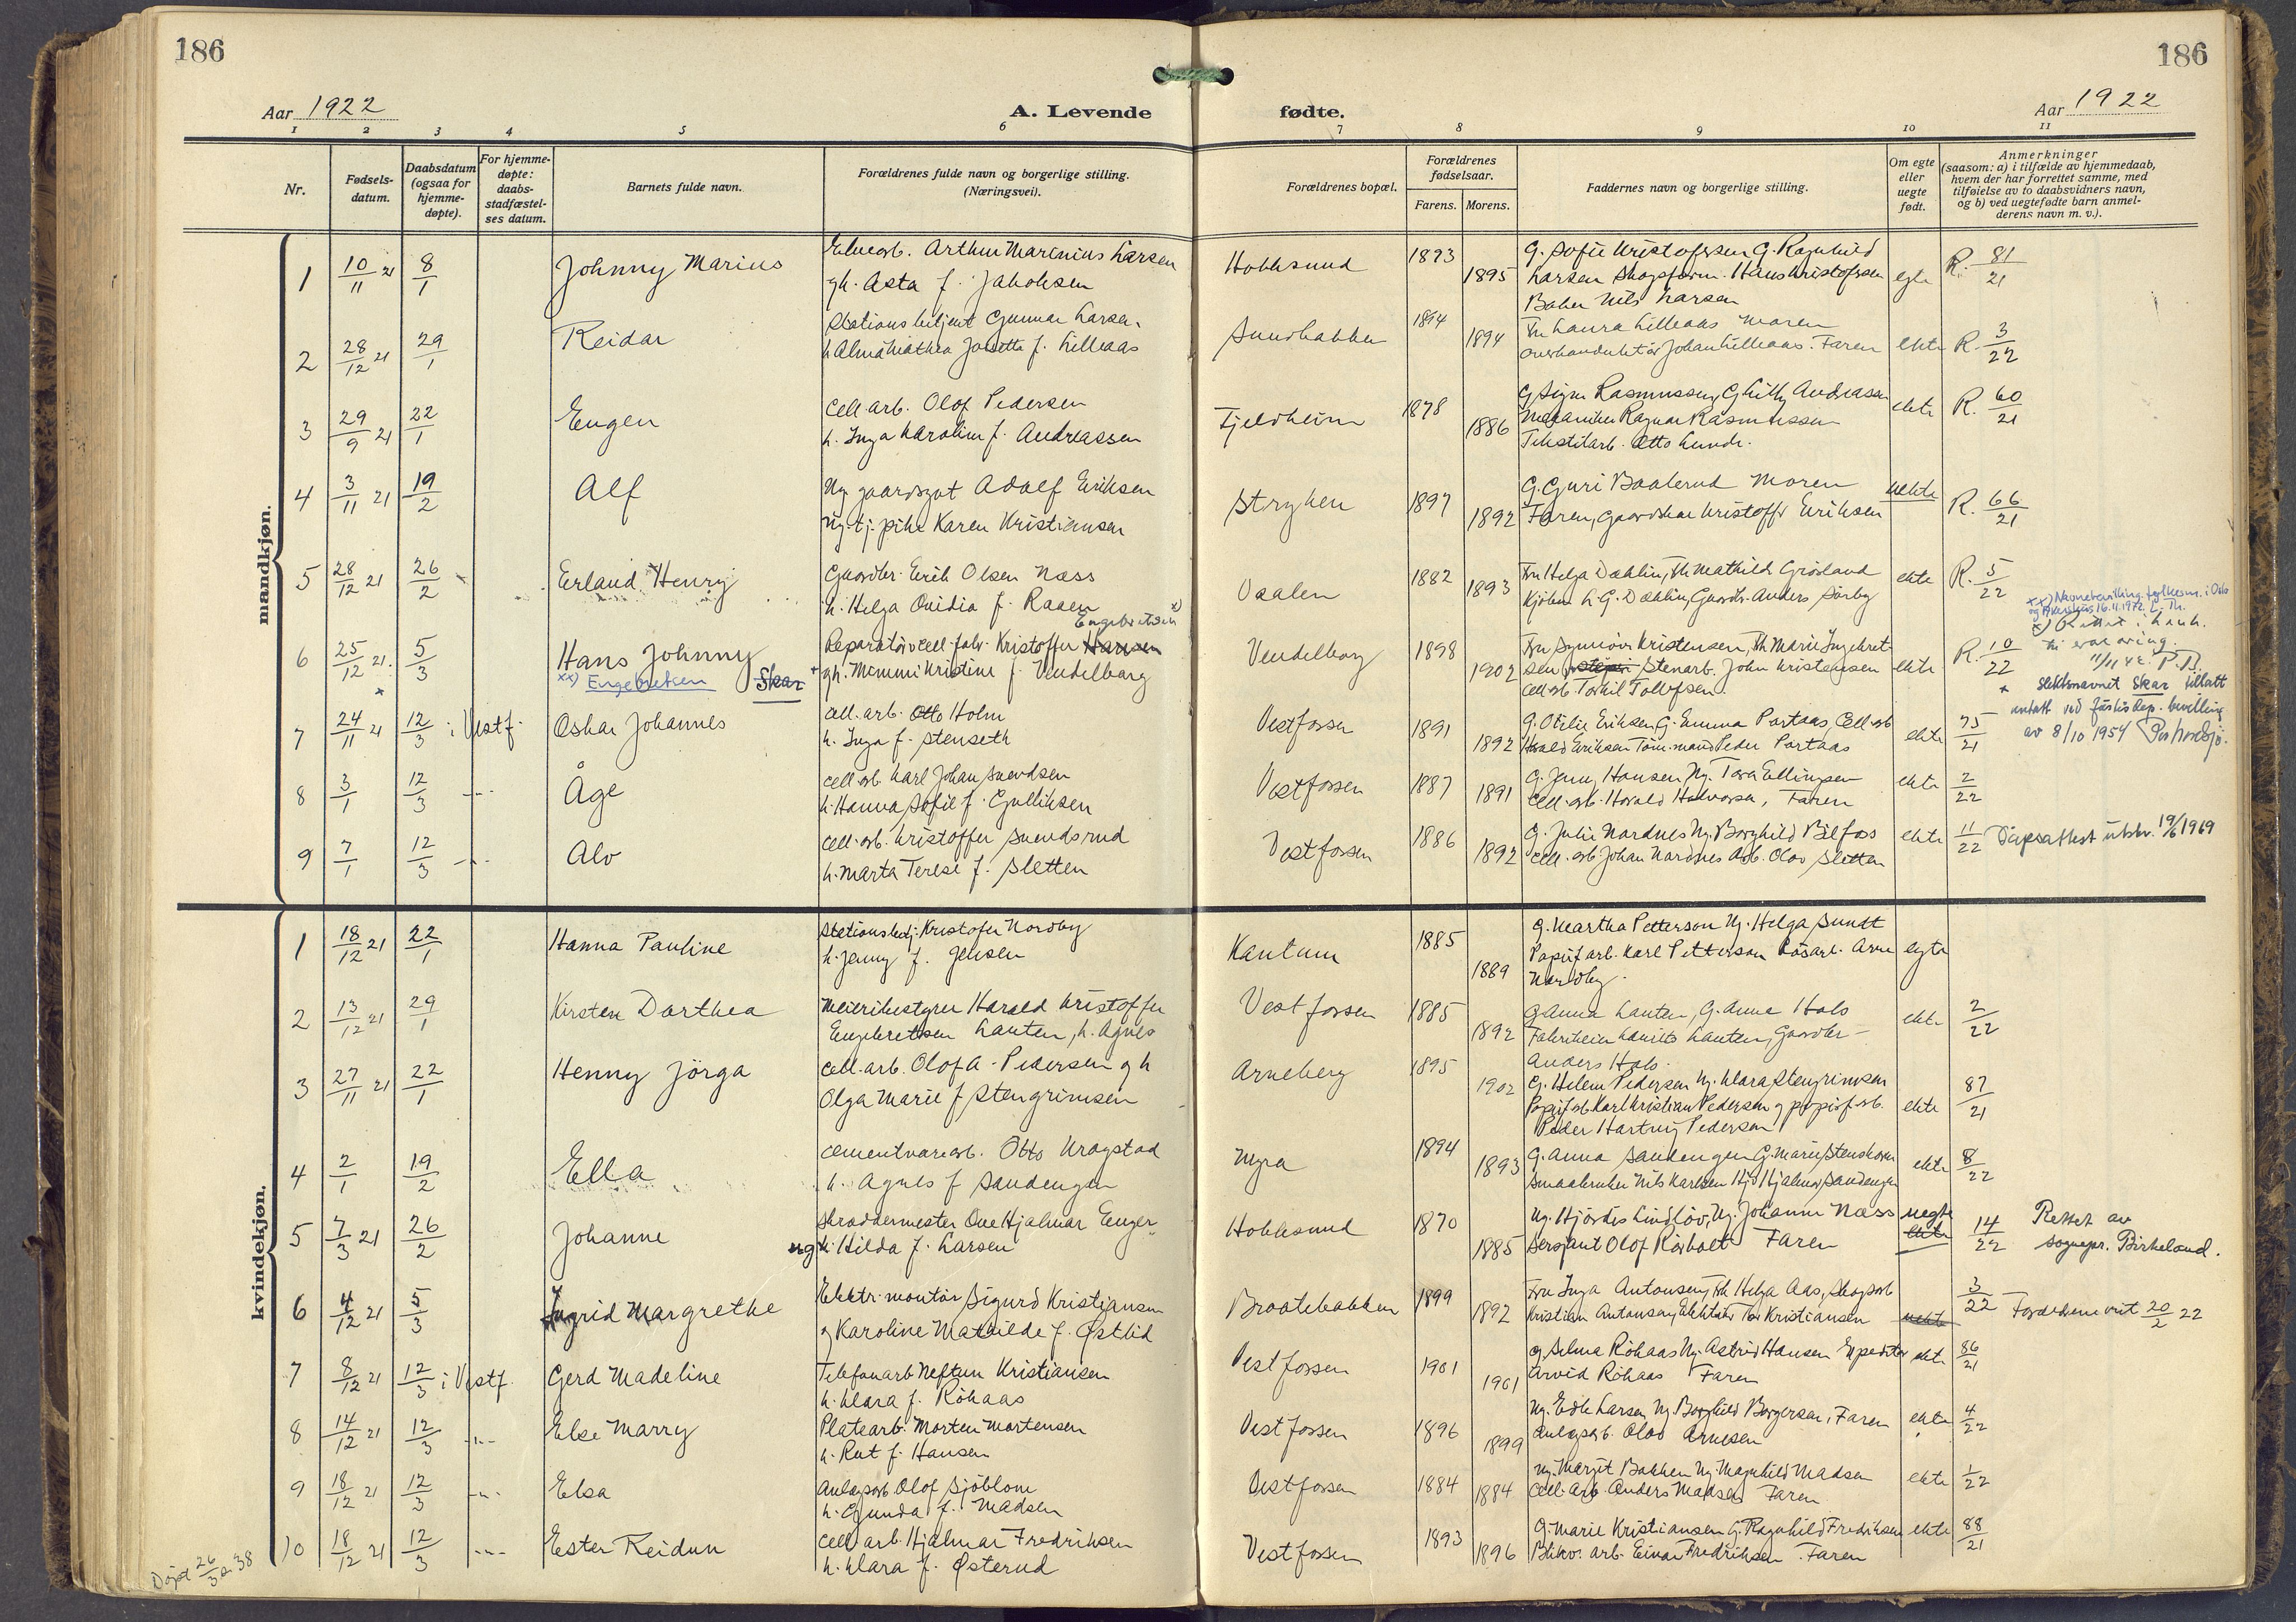 186
186
Aar 1922
A. Levende
fødte.
Aar 1922
1 2 3 4 5 6 7 8 9 10 11
Nr.
Fødsels-
datum.
Daabsdatum
(ogsaa for
hjemme-
døpte).
For hjemme-
døpte:
daabs-
stadfæstel-
ses datum.
Barnets fulde navn.
Forældrenes fulde navn og borgerlige stilling.
(Næringsvei).
Forældrenes bopæl.
Forældrenes
fødselsaar.
Farens. Morens.
Faddernes navn og borgerlige stilling.
Om egte
eller
uegte
født.
Anmerkninger
(saasom: a) i tilfælde av hjemmedaab,
hvem der har forrettet samme, med
tilføielse av to daabsvidners navn,
og b) ved uegtefødte barn anmel-
derens navn m. v.).
mandkjøn.
1 10/11 21 8/1 Johnny Marius
Arthur Marinius Larsen
gh. Asta f. Jakobsen
Hokksund 1893 1895
G. Sofie Kristofersen G. Ragnhild
Larsen Skogsform. Hans Kristofersen
Baker Nils Larsen
egte R. 81/21
2 28/12 21 29/1 Reidar
Stationsbetjent Gunnar Larsen
h. Alma Mathea Josette f. Lilleaas
Sundbakken 1894 1894
Fru Laura Lilleaas Moren
Overkonduktør Johan Lilleaas. Faren
ekte R. 3/22
3 29/9 21 22/1 Eugen
Cell.arb. Olof Pedersen
h. Inga Karoline f. Andreassen
Fjeldheim 1878 1886
G. Signe Rasmussen, G. Andreassen
Mekaniker Ragnar Rasmussen
Tekstilarb. Otto Lunde.
ekte R. 60/21
4 3/11 21 19/2 Alf
Ug. gaardsgut Adolf Eriksen
ug. tj. pike Karen Kristiansen
Stryken 1897 1892
G. Guri Baalerud Moren
Faren, Gaardbr Kristoffer Eriksen
uekte R. 66/21
5 28/12 21 26/2 Erland Henry
Gaardbr. Erik Olsen Næss
h. Helga Ovidia f. Raaen
Vaalen 1882 1893
Fru Helga Dæhlin, Fr. Mathilde Grøsland
Kjøbm. L. G. Dæhlin, Gaardbr. Anders Sørby
ekte R. 5/22
6 25/12 21 5/3 Hans Johnny
xx) Engebretsen Skar
Reparatør v cell.fabr. Kristoffer Hansen
x) Engebretsen
gh. Mimmi Kristine f. Vendelborg
Vendelborg 1898 1902
Fru Synnøve Kristensen, Fr. Marie Ingebret-
sen, Stenarb. John Kristensen
cell.arb Torkil Tollefsen.
ekte R. 10/22
xx) Navnebevilling fylkesm. i Oslo
og Akershus 16.11.1972. L. Th.
x) Rettet i henh.
til erklæring.
11/11 42. P.B.
+ Slektsnavnet Skar tillatt
antatt ved Justisdep. bevilling
av 8/10 1954
7 24/11 21 12/3 i Vestf. Oskar Johannes
cell.arb. Otto Holm
h. Inga f. Stenseth
Vestfossen 1891 1892
G. Otilie Eriksen, G. Emma Portaas, Cell.arb
Harald Eriksen Tømmerm. Peder Portaas
ekte 75/21
8 3/1 12/3 -"- Åge
cell.arb. Karl Johan Svendsen
h. Hanna Sofie f. Gulliksen
Vestfossen 1887 1891
G. Jenny Hansen, Ug. Tora Ellingsen
Cell.arb. Harald Halvorsen, Faren
ekte 2/22
9 7/1 12/3 -"- Alv
cell.arb. Kristoffer Svendsrud
h. Marta Terese f. Sletten
Vestfossen 1886 1892
G. Julie Nordnes Ug. Borghild Bilfoss
Cell.arb Johan Nordnes Arb. Olav Sletten
ekte 11/22 Dåpsattest utskr. 19/6 1969
kvindekjøn.
1 18/12 21 22/1 Hanna Pauline
Stationsbetj. Kristofer Nordby
h. Jenny f. Jensen
Kantum 1885 1889
G. Martha Petterson Ug. Helga Sundt
Papirf arb. Karl Petterson Løsarb. Arne
Nordby.
egte
2 13/12 21 29/1 Kirsten Dorthea
Meieribestyrer Harald Kristoffer
Engebretsen Lauten, h. Agnes
Vestfossen 1885 1892
G. Anna Lauten, G. Anna Hals
Fabrikeier Laurits Lauten, Gaardbr
Anders Hals.
ekte 2/22
3 27/11 21 22/1 Henny Jörga
Cell.arb. Olof A. Pedersen g h
Olga Marie f Stengrimsen
Arneberg 1895 1902
G. Helene Pedersen Ug. Klara Stengrimsen
Papirf arb Karl Kristian Pedersen g papirf.arb.
Peder Hartvig Pedersen
ekte 87/21
4 2/1 19/2 Ella
Cementvarearb. Otto Kragstad
h. Agnes f Sandengen
Myra 1894 1893
G. Anna Sandengen G. Marie Stenskorn
Smaabruker Nils Karlsen Hj. Hjalmar Sandengen
ekte 8/22
5 7/3 21 26/2 Johanne
Skræddermester Ove Hjalmar Enger
ug h. Hilda f. Larsen
Hokksund 1870 1885
Ug. Hjørdis Lindløv, Ug. Johanne Næss
Sersjant Olof Röiholt Faren
uegte ekte 14/22
Rettet av
sognepr. Birkeland.
6 4/12 21 5/3 Ingrid Margrethe
Elektr. montør Sigurd Kristiansen
g Karoline Mathilde f. Østlid
Braatebakken 1899 1892
Fru Inga Antonsen, Fr. Helga Aas, Skogsarb
Kristian Antonsen, Tor Kristiansen
uekte 3/22 Foreldrene viet 20/2 22
7 8/12 21 12/3 i Vestf. Gerd Madeline
Telefonarb Neftun Kristiansen
h. Klara f. Röhaas
Vestfossen 1901 1901
G. Selma Röhaas Ug. Astrid Hansen Expeditør
Arvid Röhaas Faren
ekte 86/21
8 14/12 21 12/3 -"- Else Marry
Platearb. Morten Mortensen
h. Rut f. Hansen
Vestfossen 1896 1899
Ug. Edle Larsen Ug. Borghild Borgersen, Faren
Anlægsarb. Olav Arnesen
ekte 4/22
9 18/12 21 12/3 -"- Elsa
Anlægsarb Olof Sjöblom
h. Gunda f. Madsen
Vestfossen 1884 1884
Ug. Margit Bakken Ug. Magnhild Madsen
Cell.arb. Anders Madsen Faren
ekte 1/22
10 18/12 21 12/3 -"- Ester Reidun
Cell arb. Hjalmar Fredriksen
h. Klara f. Østerud
Vestfossen 1893 1896
G. Marie Kristiansen G. Ragnhild Fredriksen
arb. Einar Fredriksen. Faren
ekte 88/21
Døpt 26/3 38